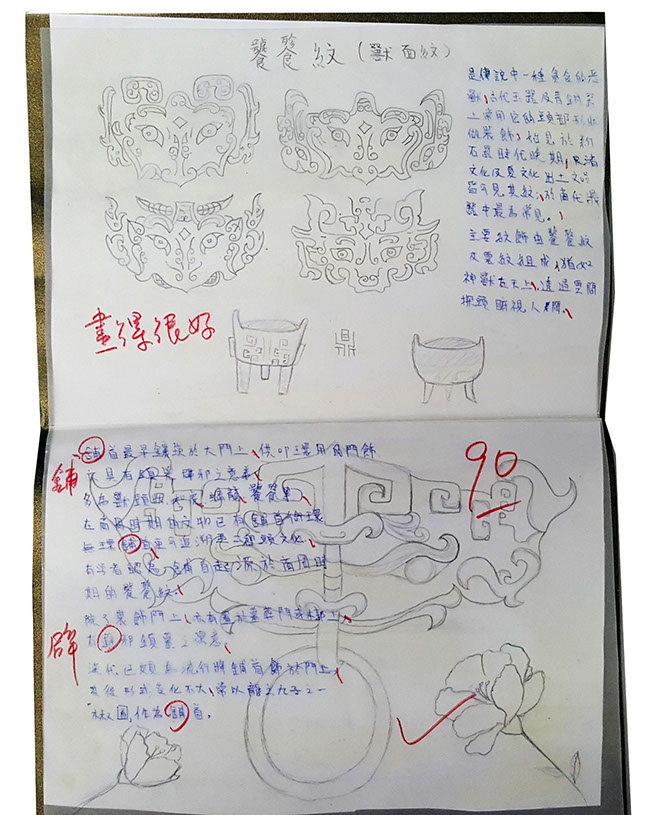 饕餮紋(獸面紋)
是傳說中一種貪食的惡
獸,古代玉器及青銅器
上常用它的頭部形狀
做裝飾,始見於新
石器時代晚期,良渚
文化及夏文化出土文物
皆可見其紋,於商代
器中最為常見。
主要紋飾由饕餮紋
及雲紋組成,猶如
神獸在天上,透過雲間
探頭眄視人間。
畫得很好
鼎
鋪首最早鑲嵌於大門上,供叩環用的門飾
又具有 驅邪之意義。
多為獸頭
饕餮等。
在商周時期的文物已有鋪首銜環
無環鋪首更可追溯至二里頭文化。
有學者認為,鋪首起源於商周時
期的饕餮紋。
除了裝飾門上,亦有置於墓葬門或棺上,
有 邪鎮墓之寓意。
漢代已頗為流行將鋪首飾於門上,
其後形式變化不大,常以龍之九子之一
椒圖,作為鋪首。
鋪
辟
90